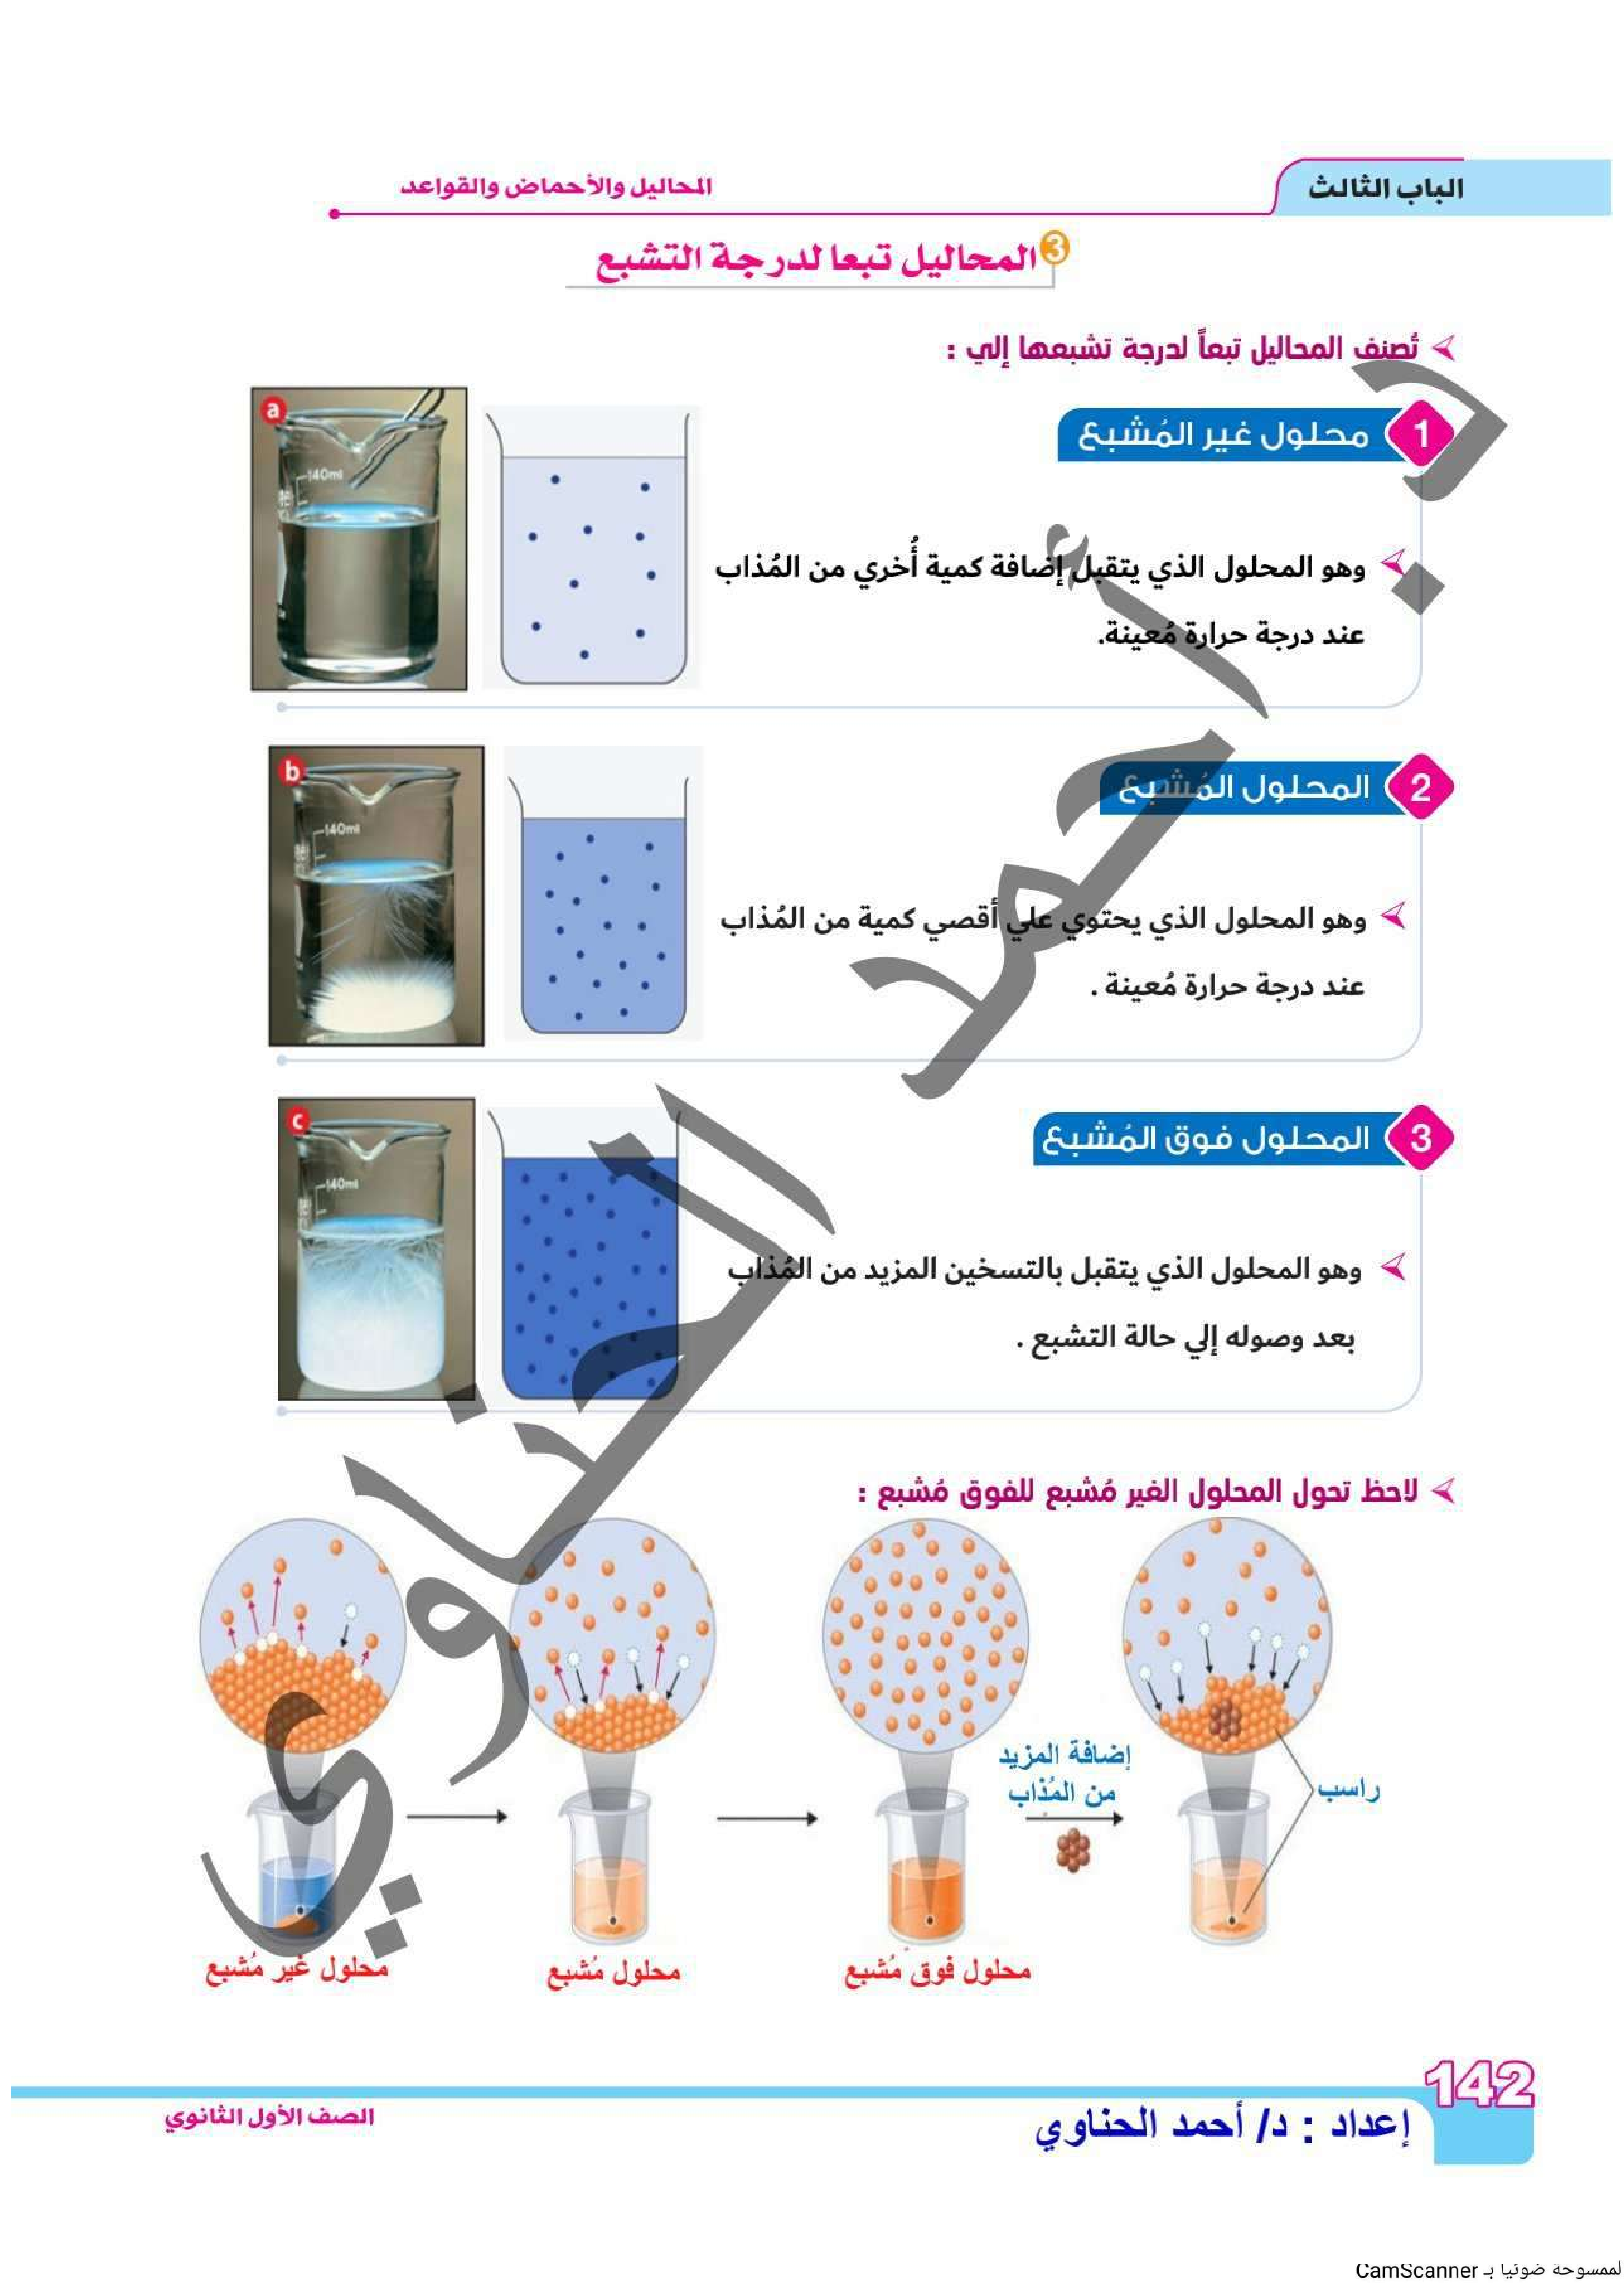 الباب الثالث
المحاليل والأحماض والقواعد
3 المحاليل تبعا لدرجة التشبع
تُصنف المحاليل تبعاً لدرجة تشبعها إلي :
1 محلول غير المُشبع
وهو المحلول الذي يتقبل إضافة كمية أُخري من المُذاب
عند درجة حرارة مُعينة.
a
140ml
2 المحلول المُشبع
وهو المحلول الذي يحتوي علي أقصي كمية من المُذاب
عند درجة حرارة مُعينة .
b
140ml
3 المحلول فوق المُشبع
وهو المحلول الذي يتقبل بالتسخين المزيد من المُذاب
بعد وصوله إلي حالة التشبع .
c
140ml
لاحظ تحول المحلول الغير مُشبع للفوق مُشبع :
إضافة المزيد
من المُذاب
راسب
محلول غير مُشبع
محلول مُشبع
محلول فوق مُشبع
د. أحمد الحناوي
142
إعداد : د/ أحمد الحناوي
الصف الأول الثانوي
لممسوحة ضوئيا بـ CamScanner